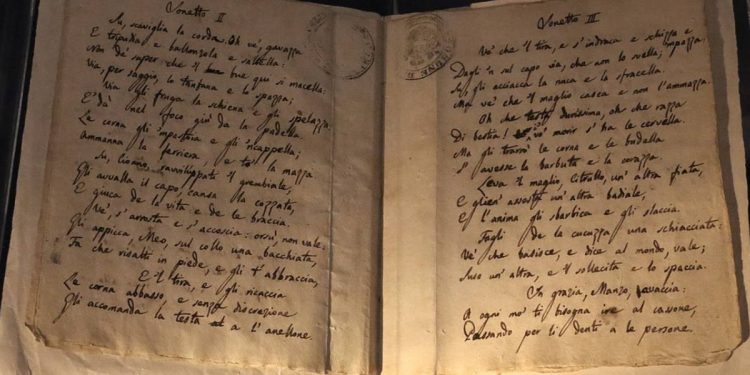 Sonetto II
Su, scaviglia la corda. Oh ve', gavazza
E tripudia e ballonzola e saltella:
Non de' saper che il bue qui si macella:
Via, per saggio, lo tanfana e lo spazza;
Via gli fruga la schiena e gli spelazza
E' dà nel foco giù da la padella
Le corna gli impastoia e gli incappella;
Ammanna la ferriera, e to' la mazza
Su, ravviluppati il grembiale,
Gli avvalla il capo, cansa la cozzata,
E giuca de la vita e de le braccia.
Ve', s'arresta e s'accoscia: orsù, non vale:
Gli appicca, Meo, sul collo una bacchiata,
Fa che risalti in piede, e gli t'abbraccia,
E il tira, e gli ricaccia
Le corna abbasso, e senza discrezione
Gli accomanda la testa a l'anellone.
Sonetto III
Ve' che il tira, e s'indraca e schizza e
impazza:
Dagli 'n sul capo via, che non lo svella;
Su gli acciacca la nuca e lo sfracella.
Ma ve' che il maglio casca e non l'ammazza.
Oh che testa durissima, oh che razza
Di bestia! vo' morir s'ha le cervella.
Ma gli trarrò le corna e le budella
S'avesse la barbuta e la corazza.
Leva il maglio, Citrullo, un'altra fiata,
E glien' assesta un'altra badiale;
E l'anima gli sbarbica e gli slaccia.
Fagli de la cucuzza una schiacciata:
Ve' che basisce, e dice al mondo, vale;
Suso un'altra, e il sollecita e lo spaccia.
In grazia, Manzo, avaccia:
A ogni mo' ti bisogna ire al cassone,
Passando per li denti a le persone.